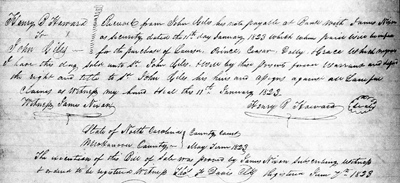 Henry B Howard Received from John Giles his note payable at Bank North James Nixon
To as security dated the 11th day January 1823 which when paid will be in full
John Giles for the purchase of Prince Easter Dolly Grace which negroes
I have this day sold unto Sd. John Giles. I will by this presents forever warrant and defend
the right and title to Sd John Giles his heirs and assigns against all Lawful
Claims as Witness my hand this 11th January 1823.
Witness James Nixon Henry B Howard (Seal)
State of North Carolina County Court
County May Term 1823
The execution of this Bill of Sale was proved by James Nixon subscribing witness
& ordered to be registered Witness Davis Clk Register June 7th 1823